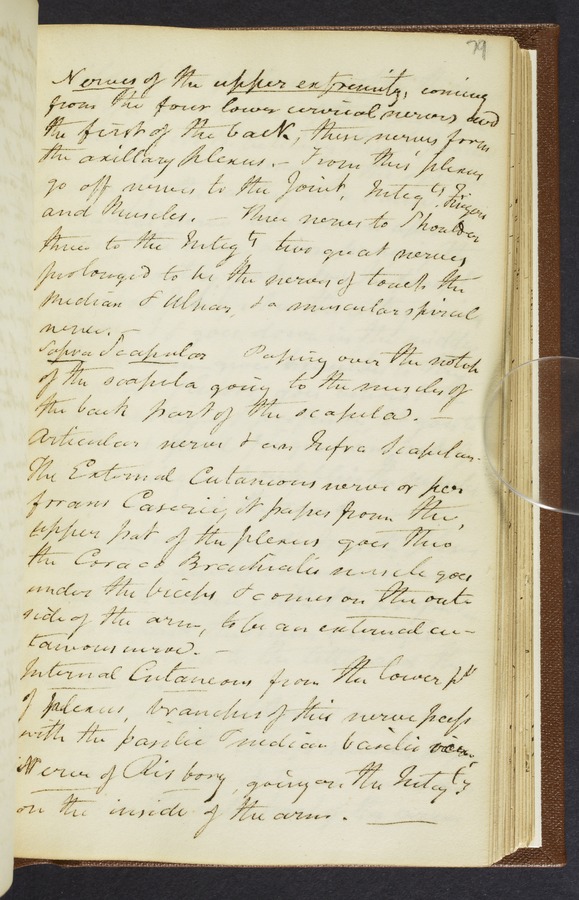 79
Nerves of the upper extremity, coming
from the four lower cervical nerves and
the first of the back, these nerves form
the axillary plexus. - From this plexus
go off nerves to the Joint, Integts. Fingers
and Muscles. - three nerves to Shoulder
three to the Integts two great nerves
prolonged to be the nerves of touch the
Median & Ulnar, & a muscular spiral
nerve. -
Supra Scapular Passing over the notch
of the scapula going to the muscles of
the back part of the scapula. -
Articular nerve & an Infra Scapular -
The External Cutaneous nerve or per
forans Casserii, it passes from the,
upper part of the plexus goes thro
the Coraco Brachialis muscle goes
under the biceps & comes on the out
side of the arm, to be an external cu-
taneous nerve. -
Internal Cutaneous from the lower pt
of plexus, branches of this nerve pass
with the basilic & median basilic vein,
Nerve of Risbory, going on the Integts.
on the inside of the arm. -